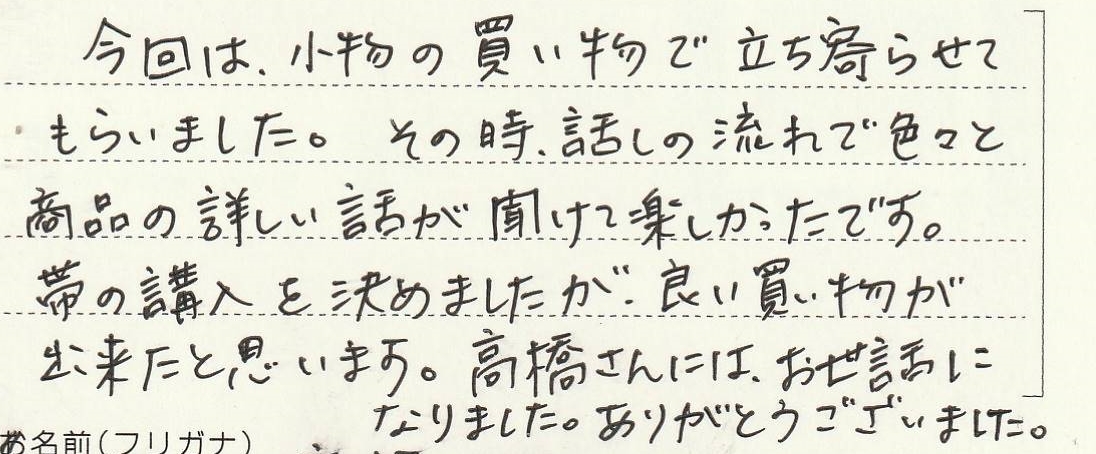 今回は、小物の買い物で立ち寄らせて
もらいました。その時、話しの流れで色々と
商品の詳しい話が聞けて楽しかったです。
帯の講入を決めましたが、良い買い物が
出来たと思います。高橋さんには、お世話に
なりました。ありがとうございました。
お名前(フリガナ)